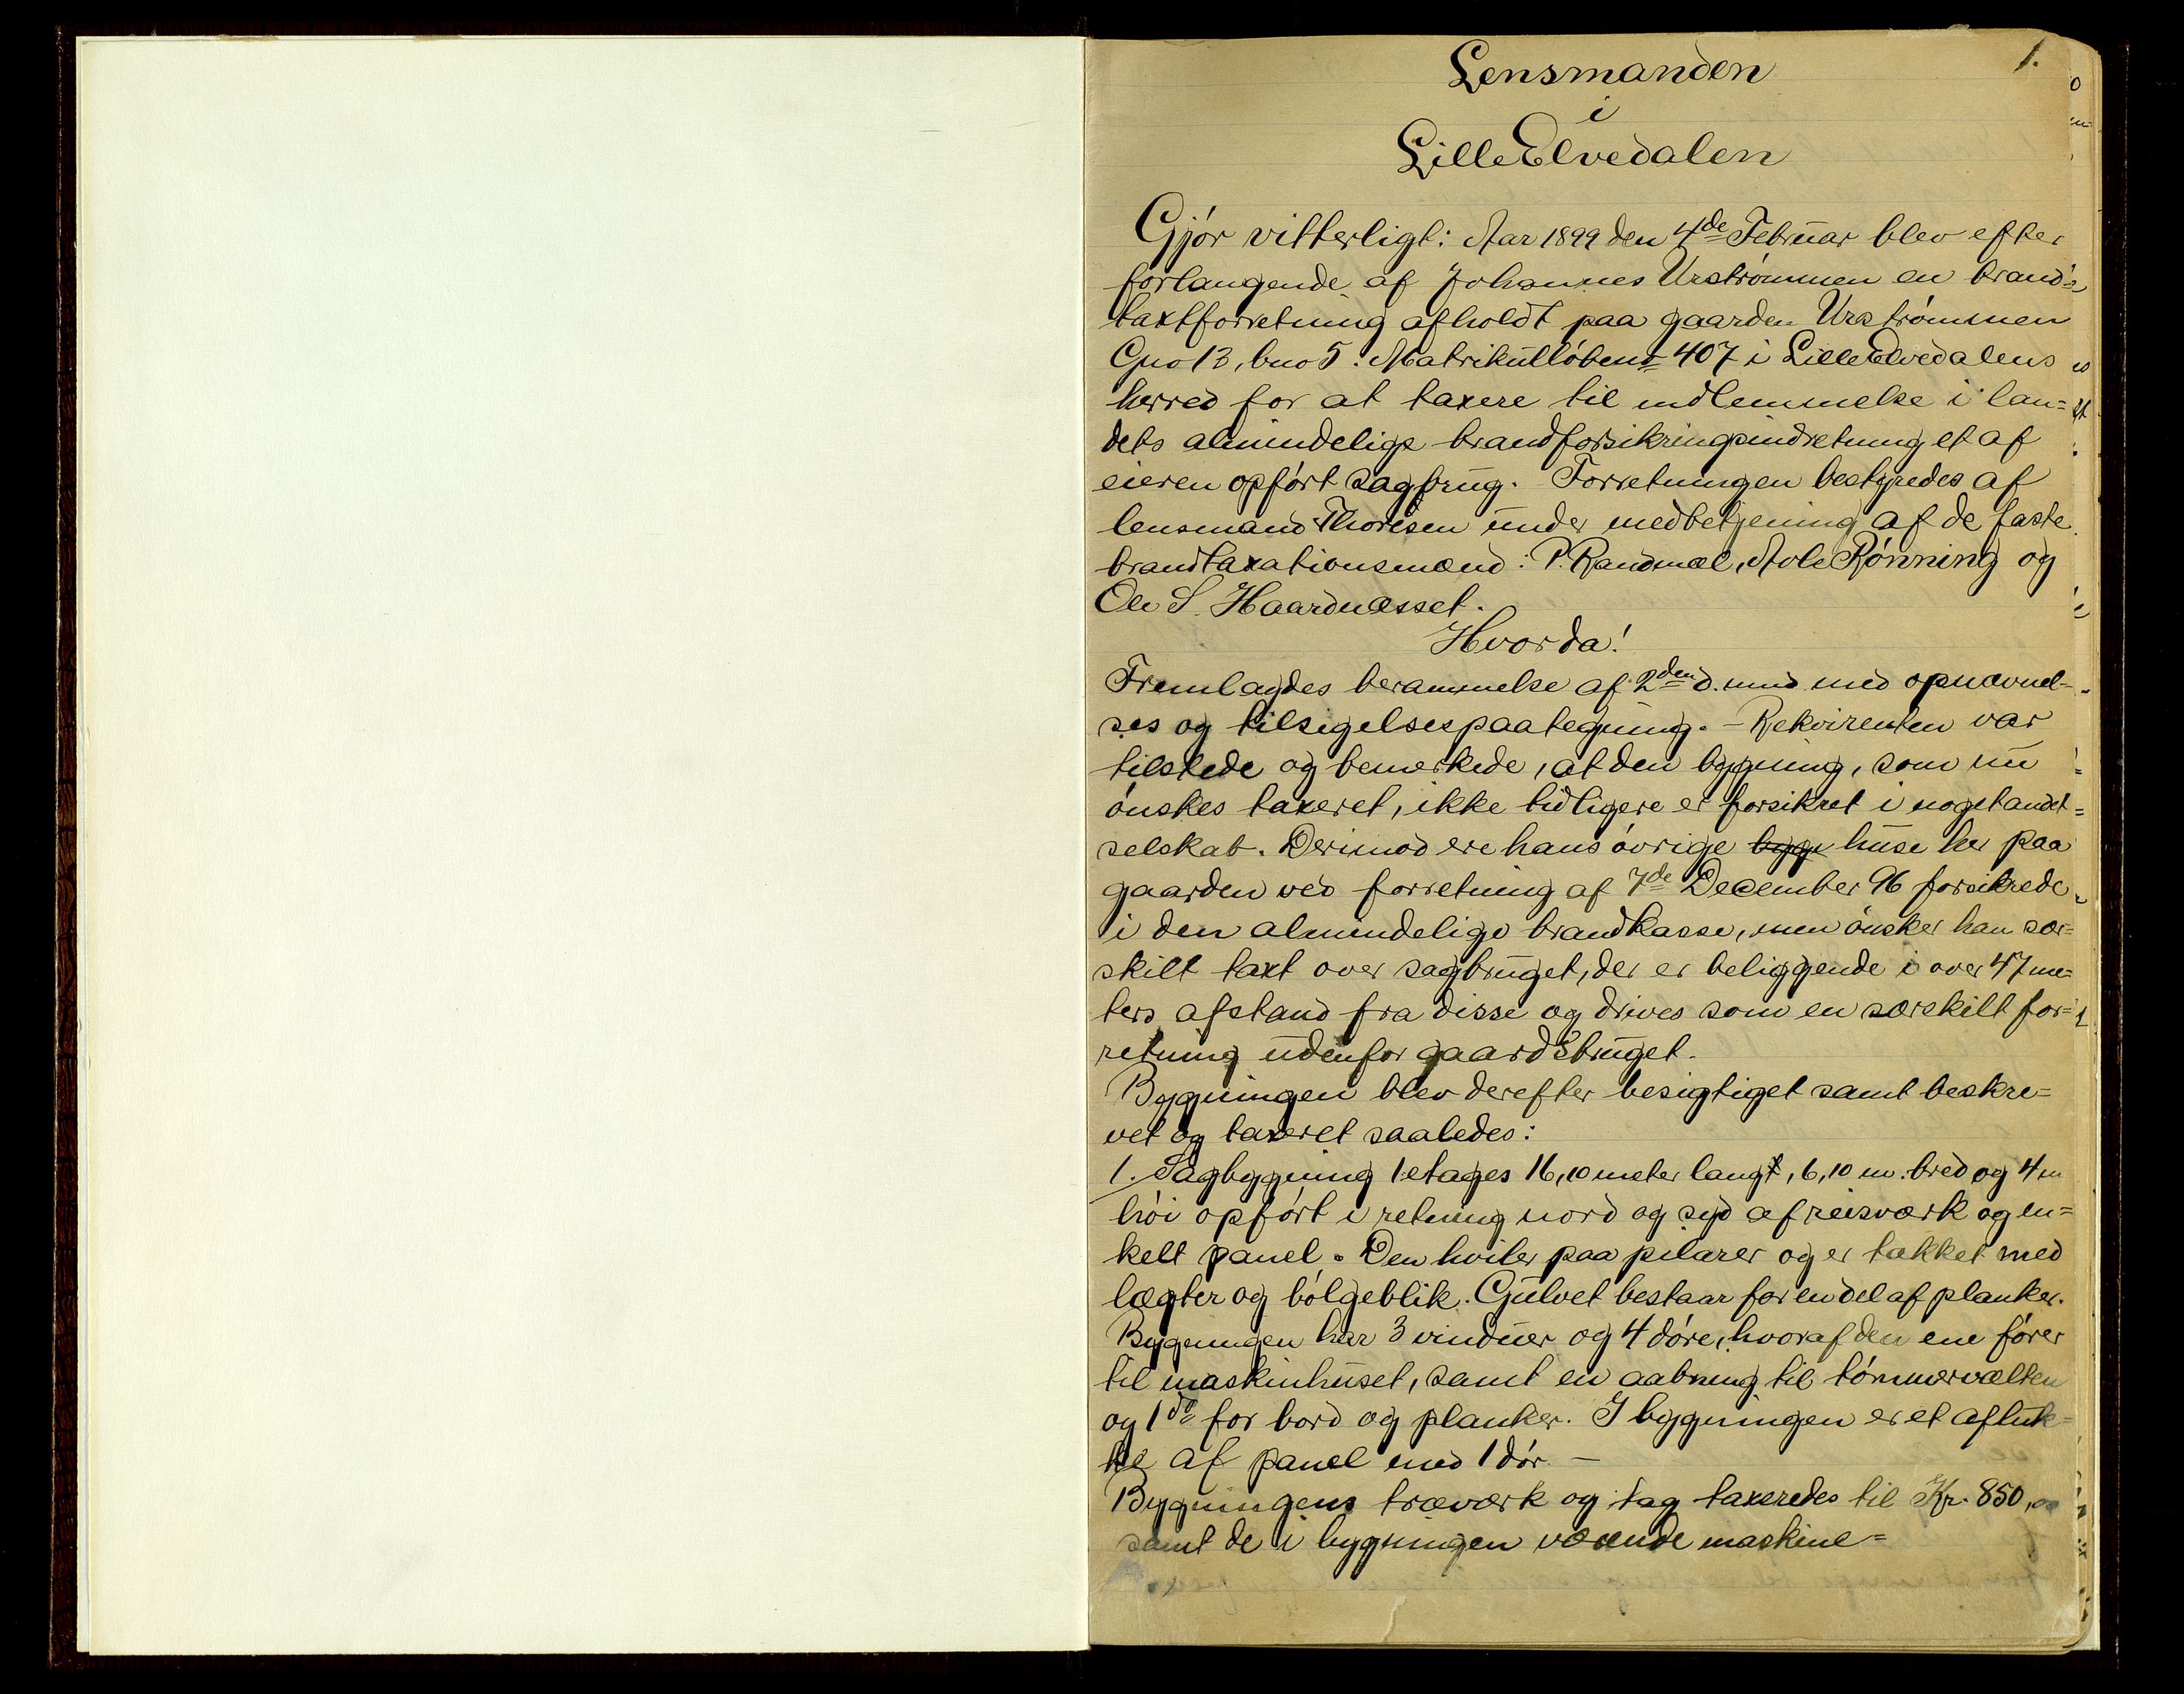 1.
Lensmanden
i
Lille Elvedalen
Gjør vitterligt: Aar 1899 den 4de Februar blev efter
forlangende af Johannes Urstrømmen en brand=
taxtforretning afholdt paa gaarden Urstrømmen
Gno 13, bno 5. Matrikulløbeno 407 i Lille Elvedalens
herred for at taxere til indlemmelse i lan=
dets almindelige brandforsikringsindretning et af
eieren opført sagbrug. Forretningen bestyredes af
lensmand Thoresen under medbetjening af de faste
brandtaxationsmænd: P. Randmæl, Avle Rønning og
Ole S. Haardnæsset.
Hvorda!
Fremlagdes berammelse af 2den d. mnd med opnævnel=
ses og tilsigelsespaategning. – Rekvirenten var
tilstede og bemerkede, at den bygning, som nu
ønskes taxeret, ikke tidligere er forsikret i noget andet
selskab. Derimod ere hans øvrige bygge huse her paa
gaarden ved forretning af 7de December 96 forsikrede
i den almindelige brandkasse, men ønsker han sær=
skilt taxt over sagbruget, der er beliggende i over 47 me=
ters afstand fra disse og drives som en særskilt for=
retning udenfor gaardsbruget.
Bygningen blev derefter besigtiget samt beskre=
vet og taxeret saaledes:
1. Sagbygning 1 etages 16,10 meter langt, 6,10 m. bred og 4 m
høi opført i retning nord og syd af reisværk og en=
kelt panel. Den hviler paa pilarer og er tækket med
lægter og bølgeblik. Gulvet bestaar for en del af planker.
Bygningen har 3 vinduer og 4 døre, hvoraf den ene fører
til maskinhuset, samt en aabning til tømmervælten
og 1 do for bord og planker. I bygningen er et afluk=
ke af panel med 1 dør. –
Bygningens træværk og tag taxeredes til Kr. 850,00
samt de i bygningen værende maskine=